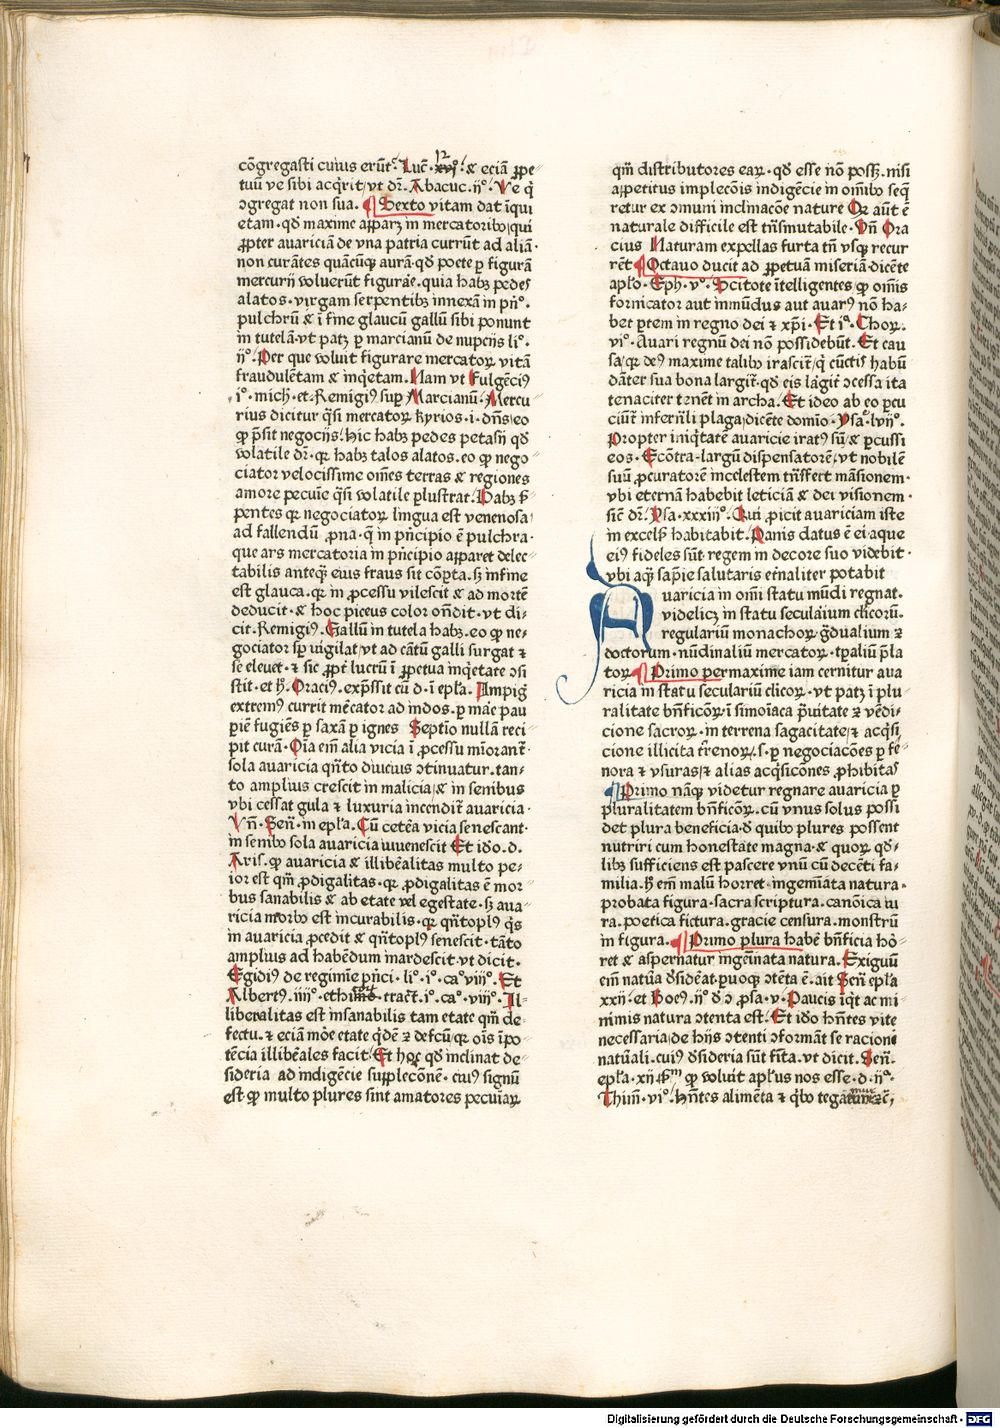 cōgregasti cuius erūt. Luc̄. xvjº. & eciā ꝓpe
12
tuū ve sibi acq̇rit, vt dr̄. Abacuc. ijº. Ve q̇
ↄgregat non sua. ¶ Sexto vitam dat īqui
etam. qd̄ maxime apparꝫ in mercatoribꝰ, qui
ꝓpter auariciā de vna patria currūt ad aliā.
non curātes quācūqꝫ aurā. qd̄ poete ꝑ figurā
mercurij voluerūt figurare. quia habꝫ pedes
alatos. virgam serpentibꝫ innexā in prīº.
pulchrū & ī fine glaucū gallū sibi ponunt
in tutelā. vt patꝫ ꝑ marcianū de nupcijs liº.
ijº. Per que voluit figurare mercatoꝝ vitā
fraudulētam & inq̇etam. Nam vt Fulgēciꝰ
iº. mich. et. Remigiꝰ suꝑ Marcianū. Mercu
rius dicitur q̄si mercatoꝝ kyrios. i. dn̄s, eo
ꝙ p̄sit negocijs. hic habꝫ pedes petasij qd̄
volatile dr̄. qꝛ habꝫ talos alatos. eo ꝙ nego
ciator velocissime om̄es terras & regiones
amore pecuīe q̄si volatile ꝑlustrat. Habꝫ s̄
pentes qꝛ negociatoꝝ lingua est venenosa
ad fallendū ꝓna. q̄ in pn̄cipio ē pulchra
que ars mercatoria in pn̄cipio apparet delec
tabilis anteq̄ȝ eius fraus sit cōpta. sꝫ in fine
est glauca. qꝛ in ꝓcessu vilescit & ad mortē
deducit. & hoc piceus color on̄dit. vt di
cit. Remigiꝰ. Gallū in tutela habꝫ. eo ꝙ ne
gociator sp̄ vigilat, vt ad cātū galli surgat ⁊
se eleuet. ⁊ sic ꝓpt̄ lucrū ī ꝓpetua inq̇etate ↄsi
stit. et h̄. Oraciꝰ. exp̄ssit cū d. ī ep̄la. Impigꝰ
extremꝰ currit mēcator ad indos. ꝑ mare pau
piē fugiēs ꝑ saxā ꝑ ignes Septīo nullā reci
pit curā. Oīa em̄ alia vicia ī ꝓcessu mīorant̄.
sola auaricia qn̄to diucius ↄtinuatur. tan
to amplius crescit in malicia, & in senibus
vbi cessat gula ⁊ luxuria incendit̄ auaricia.
Vn̄. Sen̄. in ep̄la. Cū cetēa vicia senescant
in senibꝰ sola auaricia iuuenescit Et idº. d.
Aris. ꝙ auaricia & illibēalitas multo pe
ior est qm̄ ꝓdigalitas. qꝛ ꝓdigalitas ē mor
bus sanabilis & ab etate vel egestate. sꝫ aua
ricia morbꝰ est incurabilis. qꝛ qn̄toplꝰ q̇s
in auaricia ꝓcedit & qn̄toplꝰ senescit. tāto
amplius ad habēdum inardescit. vt dicit.
Egidiꝰ de regimīe pn̄ci. liº. iº. caº viijº. Et
Albertꝰ. iiijº. ethicoꝝ. tract̄. iº. caº. viijº. Il
liberalitas est insanabilis tam etate qm̄ de
fectu. ⁊ eciā mōe etate q̇dē ⁊ defcū, qꝛ oīs īpo
tēcia illibēales facit. Et hoꝝ qd̄ inclinat de
sideria ad indigēcie supplecōnē. cuiꝰ signū
est ꝙ multo plures sint amatores pecuīaꝝ
qm̄ distributores eaꝝ. qd̄ esse nō possꝫ. nisi
appetitus implecōis indigēcie in oīmbꝰ seq̄
retur ex ↄmuni inclinacōe nature Qꝛ aūt ē
naturale difficile est trn̄smutabile. Vn̄ Ora
cius Naturam expellas furta tn̄ vsqꝫ recur
rēt ¶ Octauo ducit ad ꝓpetuā miseriā dicēte
aplo. Eph. vº. Scitote ītelligentes, ꝙ om̄is
fornicator aut inmūdus aut auarꝰ nō ha
bet ꝑtem in regno dei ⁊ xp̄i. Et iª. Choꝝ.
viº. Auari regnū dei nō possidebūt. Et cau
sa, qꝛ deꝰ maxime talibꝰ irascit̄, q̇ cūctis habū
dāter sua bona largit̄. qd̄ eis lāgit̄ ↄcessa ita
tenaciter tenēt in archa. Et ideo ab eo ꝑcu
ciūt̄ infern̄li plaga, dicēte domīo. Ysaº. lvijº.
Propter iniq̇tatē auaricie iratꝰ sū & ꝑcussi
eos. Ecōtra. largū dispensatorē, vt nobilē
suū ꝓcuratorē incelestem trn̄sfert māsionem.
vbi eternā habebit leticiā & dei visionem.
sic̄ dr̄. Ysa. xxxiijº. Qui ꝓicit auariciam iste
in excelsꝫ habitabit. Panis datus ē ei. aque
eiꝰ fideles sūt. regem in decore suo videbit.
vbi aq̄ȝ sapīe salutaris etn̄aliter potabit
Auaricia in om̄i statu mūdi regnat.
videlicꝫ in statu seculaiū clicorū.
regulariū monachoꝝ. gd̄ualium ⁊
doctorum. nūdinaliū mercatoꝝ. tꝑaliū p̄la
toꝝ. ¶ Primo permaxime iam cernitur aua
ricia in statu seculariū clicoꝝ. vt patꝫ ī plu
ralitate bn̄ficōꝝ. ī simoīaca p̄uitate ⁊ vēdi
cione sacroꝝ. in terrena sagacitate, ⁊ acq̇si
cione illicita tr̄renoꝝ. s. ꝑ negociacōes ꝑ fe
nora ⁊ vsuras, ⁊ alias acq̇sicōnes ꝓhibitas
¶ Primo nāqꝫ videtur regnare auaricia ꝑ
pluralitatem bn̄ficōꝝ. cū vnus solus possi
det plura beneficia. d̄ quibꝰ plures possent
nutriri cum honestate magna. & quoꝝ qd̄
libꝫ sufficiens est pascere vnū cū decēti fa
milia. hꝫ em̄ malū horret. ingemīata natura.
probata figura. sacra scriptura. canōica iu
ra. poetica fictura. gracie censura. monstrū
in figura. ¶ Primo plura habē bn̄ficia hō
ret & aspernatur ingemīnata natura. Exiguū
em̄ natūa d̄sideāt. ꝑuoqꝫ ↄtēta ē. ait Sen̄ ep̄la
xxij. et Boeꝰ. ijº d̄ ↄ ꝓsa. v. Paucis īqt ac mi
nimis natura ↄtenta est. Et idº hn̄tes vite
necessaria, de hijs ↄtenti ↄformāt se racioni
natūali. cuiꝰ d̄sideria sūt fīta. vt dicit. Sen̄.
ep̄la. xij ꝙ voluit aplus nos esse. d. ijª.
Thim̄. viº. hn̄tes alimēta ⁊ q̇bꝰ tegamur